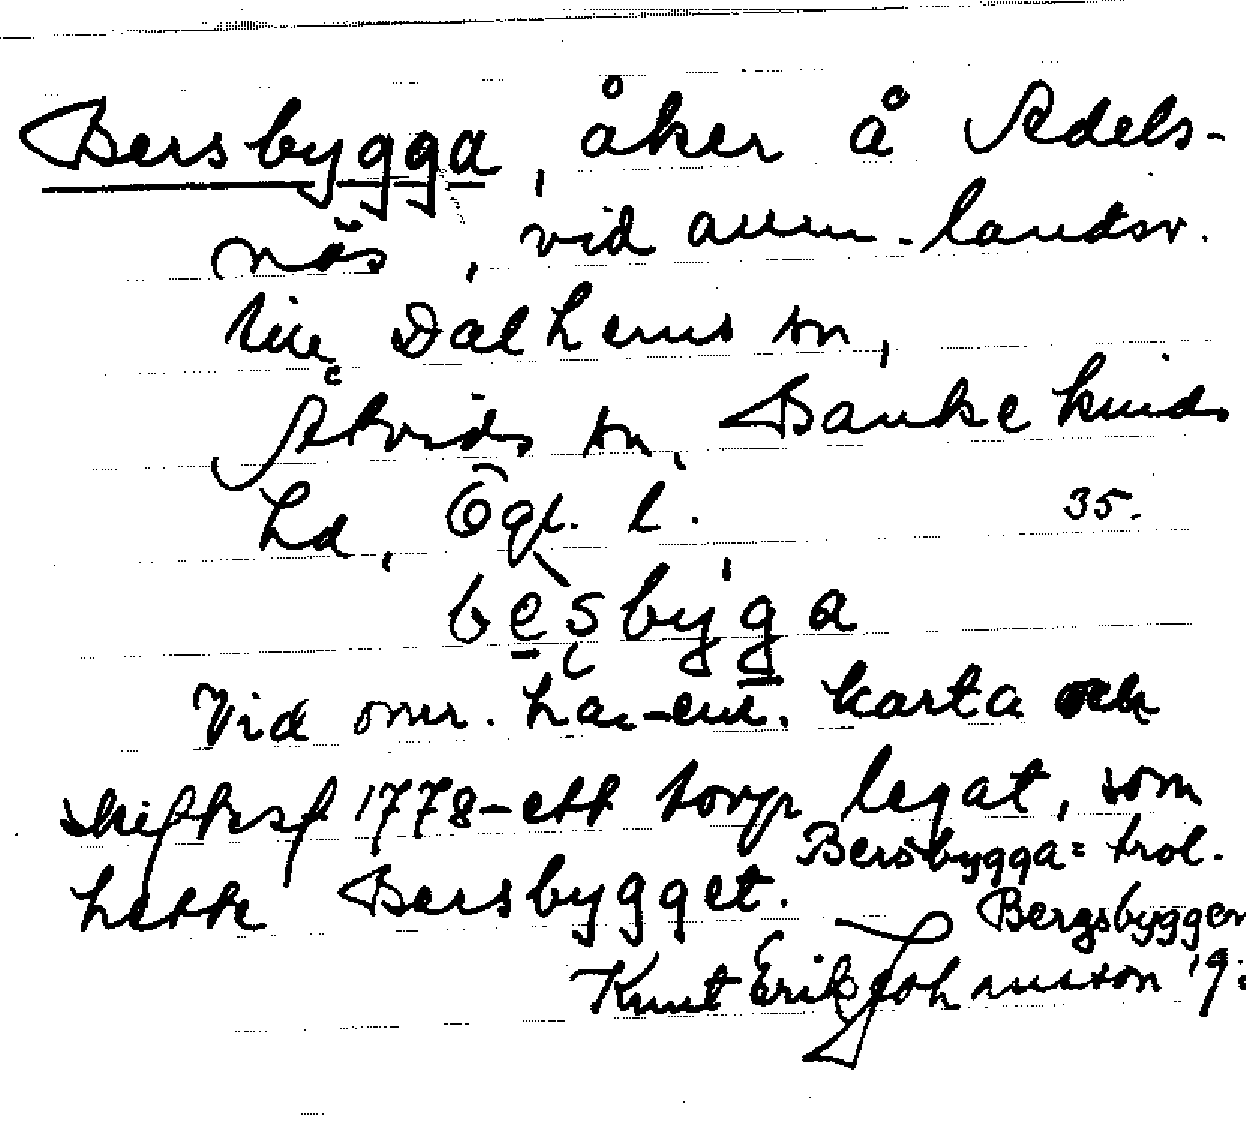 Bersbygga, åker å Adels-
näs, vid allm. landsv.
till Dalhems sn,
Åtvids sn, Bankekinds
hd, Ögl. l. 35.
besby'ga
Vid omr. har enl. karta och
skiftesf 1778 ett torp legat, som
hette Bersbygget.
Bersbygga = trol.
Bergsbyggen
Knut Erik Johansson